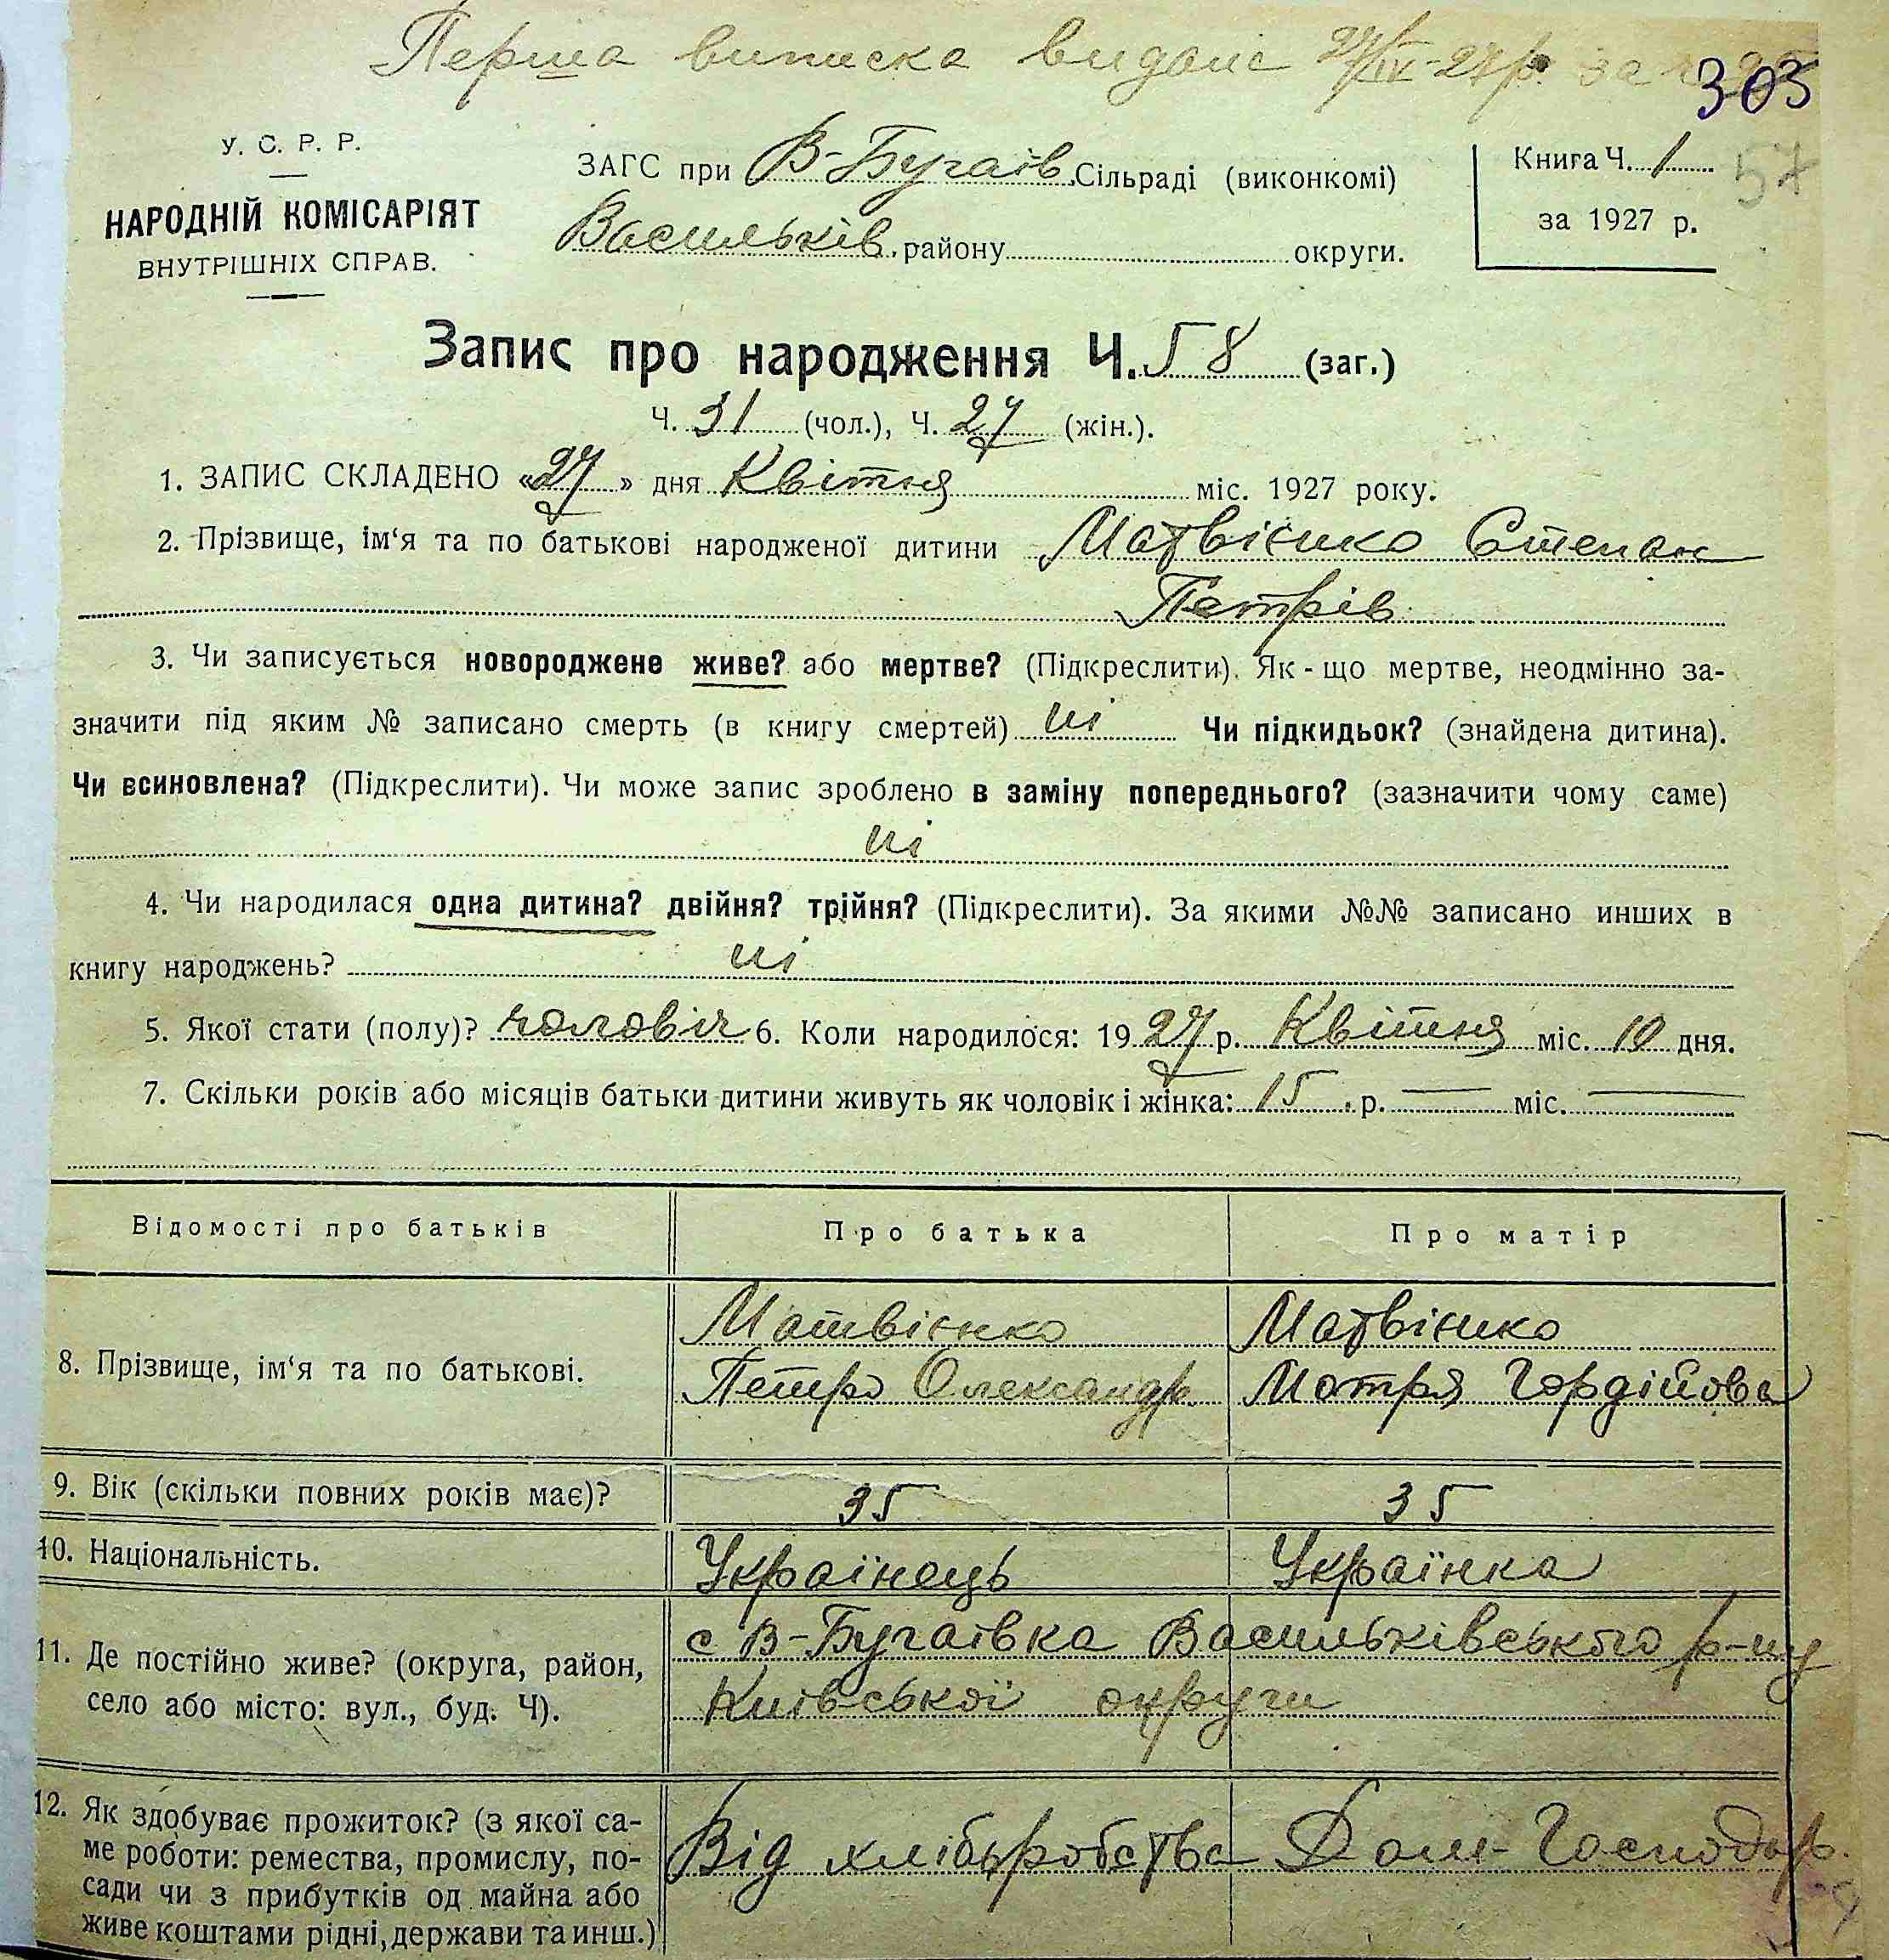 Перша виписка видана 27/IV-27р. за ч.
303
У. С. Р. Р.
НАРОДНІЙ КОМІСАРІЯТ
ВНУТРІШНІХ СПРАВ.
ЗАГС при В-Бугаїв. Сільраді (виконкомі)
Васильків. району округи.
Книга Ч. 1
57
за 1927 р.
Запис про народження Ч. 58 (заг.)
Ч. 31 (чол.), Ч. 27 (жін.).
1. ЗАПИС СКЛАДЕНО «27» дня Квітня міс. 1927 року.
2. Прізвище, ім‘я та по батькові народженої дитини Матвієнко Степан
Петрів
3. Чи записується новороджене живе? або мертве? (Підкреслити). Як-що мертве, неодмінно за-
значити під яким № записано смерть (в книгу смертей) ні Чи підкидьок? (знайдена дитина).
Чи всиновлена? (Підкреслити). Чи може запис зроблено в заміну попереднього? (зазначити чому саме)
ні
4. Чи народилася одна дитина? двійня? трійня? (Підкреслити). За якими №№ записано инших в
книгу народжень? ні
5. Якої стати (полу)? чоловіч 6. Коли народилося: 1927 р. Квітня міс. 10 дня.
7. Скільки років або місяців батьки дитини живуть як чоловік і жінка: 15 р. — міс. —
Відомості про батьків Про батька Про матір
Матвієнко Матвієнко
8. Прізвище, ім‘я та по батькові. Петро Олександр. Мотря Гордійова
9. Вік (скільки повних років має)? 35 35
10. Національність. Українець Українка
11. Де постійно живе? (округа, район, с В-Бугаївка Васильківського р-ну
село або місто: вул., буд. Ч). Київської округи
12. Як здобуває прожиток? (з якої са-
ме роботи: ремества, промислу, по- Від хліборобства Дом-Господар.
сади чи з прибутків од майна або
живе коштами рідні, держави та инш.)